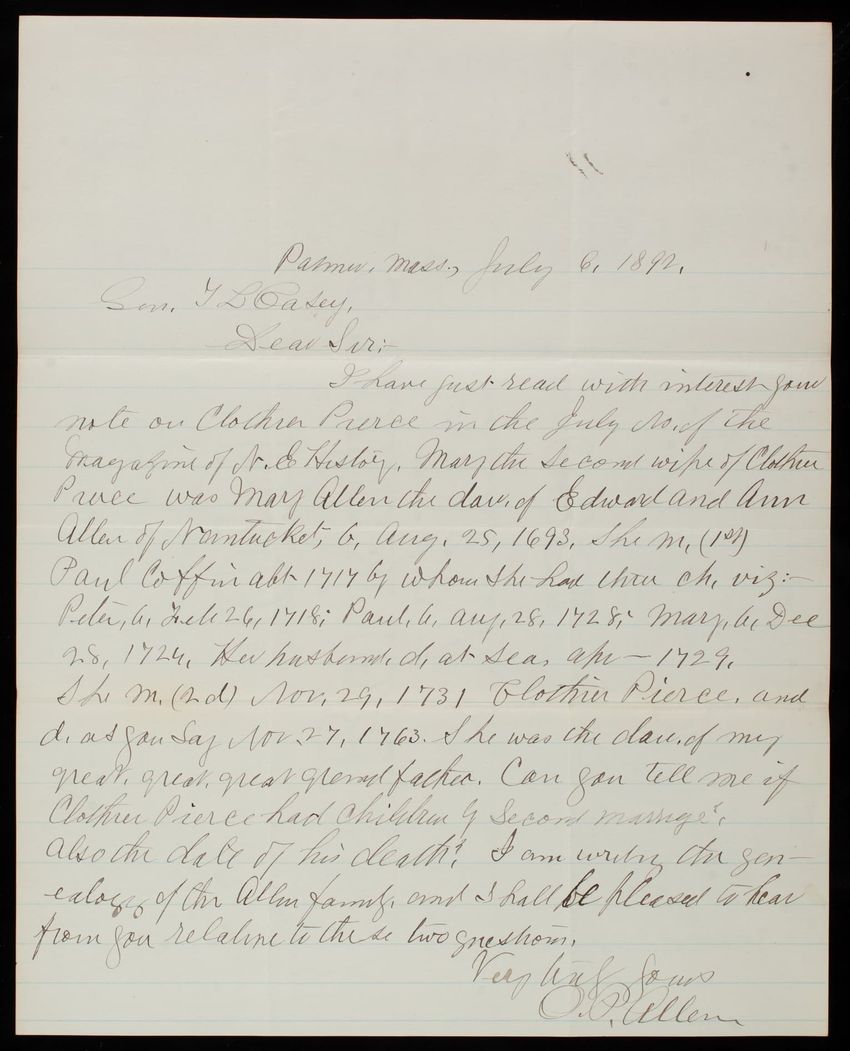 Palmer, Mass., July 6, 1892.
Gen. T L Casey,
Dear Sir:-
I have just read with interest your
note on Clothier Pierce in the July No. of the
Magazine of N. E History. Mary the second wife of Clothier
Pierce was Mary Allen the dau. of Edward and Ann
Allen of Nantucket, b. Aug. 25, 1693. She m. (1st)
Paul Coffin abt 1717 by whom she had three ch. viz:-
Peter, b. Feb 26, 1718; Paul, b. Aug. 28, 1728; Mary, b. Dec
28, 1724. Her husband, d. at sea, apr - 1729.
She m. (2d) Nov. 29, 1731 Clothier Pierce, and
d. as you say Nov. 27, 1763. She was the dau. of my
great, great, great grandfather. Can you tell me if
Clothier Pierce had children by second marriage?,
also the date of his death? I am writing the gen-
ealogy of the Allen family, and shall be pleased to hear
from you relative to these two questions.
Very truly yours
O. P. Allen